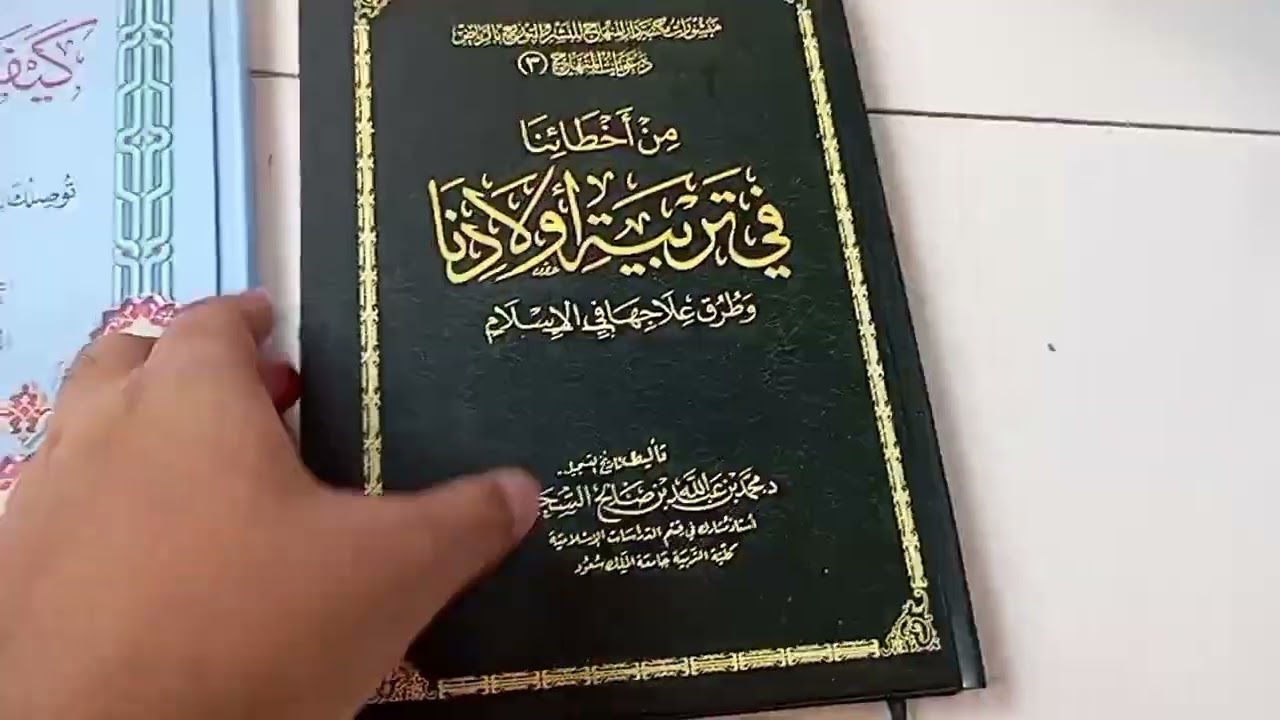 منشورات مكتبة دار المنهاج للنشر والتوزيع بالرياض
دعويات المنهاج (٣)
مِنْ أَخْطَائِنَا
فِي تَرْبِيَةِ أَوْلَادِنَا
وَطُرُقُ عِلَاجِهَا فِي الإِسْلَامِ
تأليف
د. محمد بن عبدالله بن صالح
أستاذ مشارك في قسم الدراسات الإسلامية
كلية التربية جامعة الملك سعود
تُوصِلُكَ